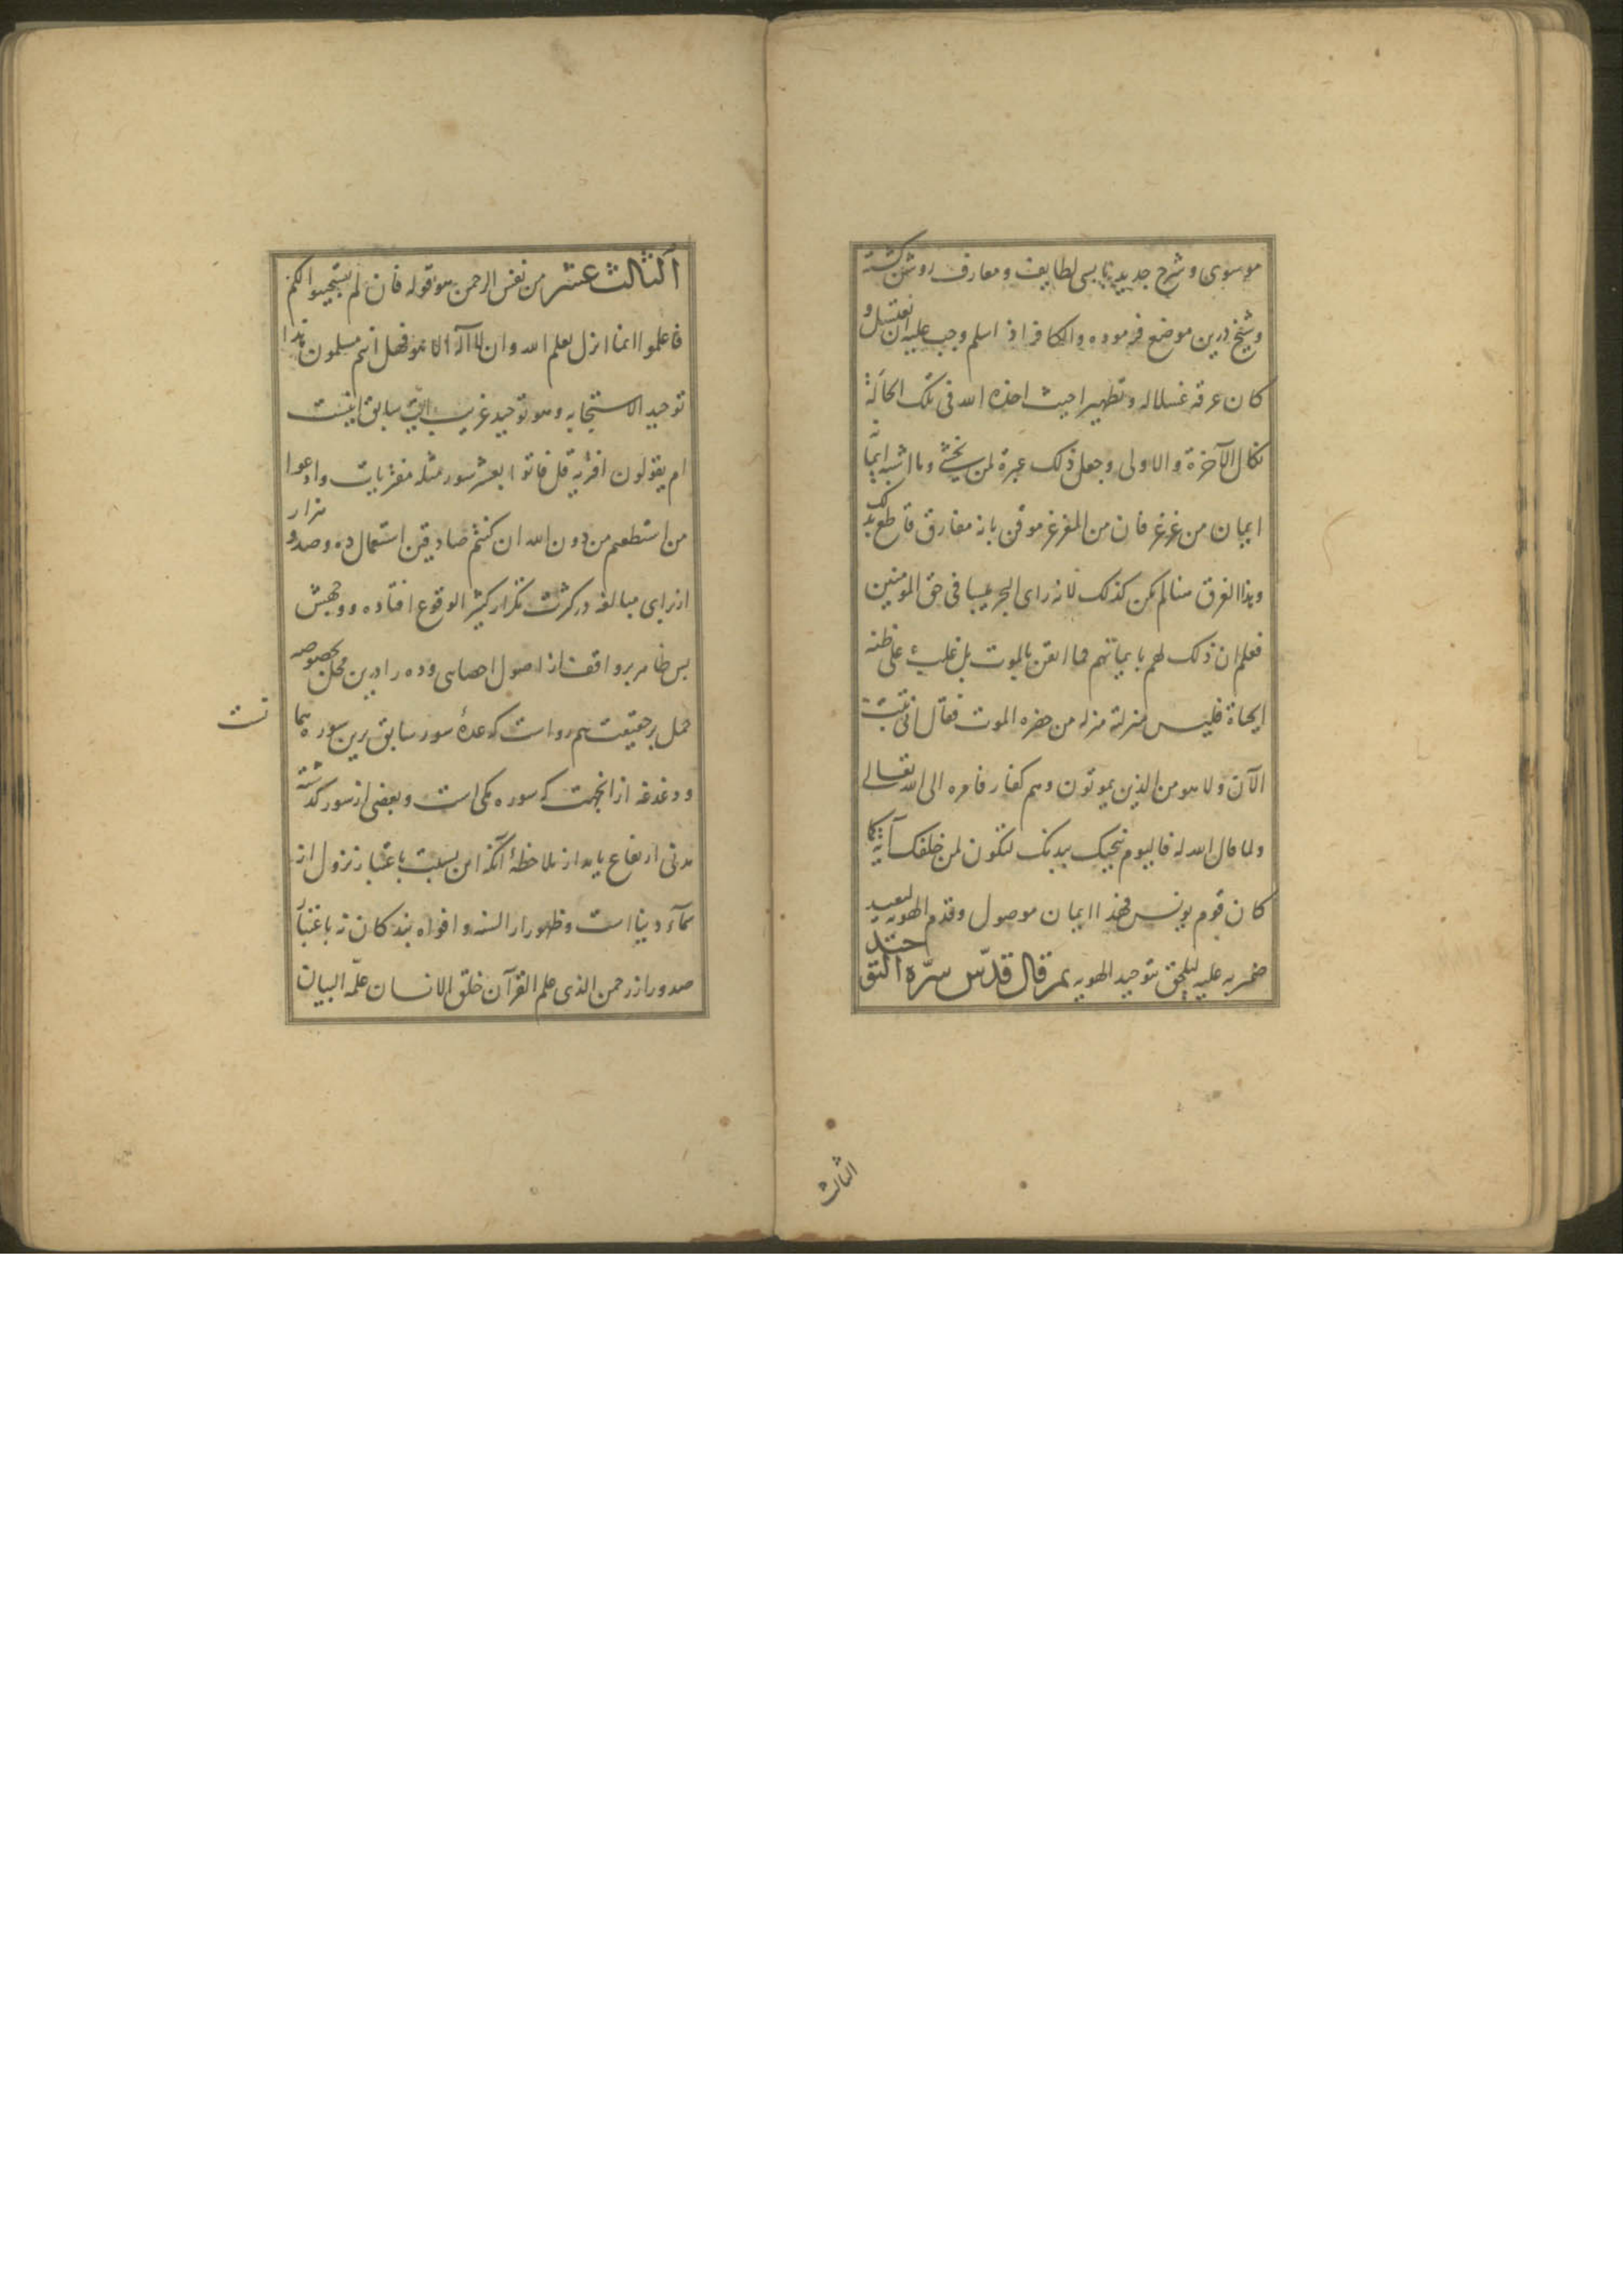 موسوی و شرح جدید با بسی لطایف و معارف روشن گشته
و شیخ درین موضع فرموده والکافر اذا اسلم وجب علیه ان یغتسل و
کان غرقه غسلا له و تطهیرا حیث اخذه الله فی تلک الحالة
نکال الآخرة والاولی و جعل ذلک عبرة لمن یخشی وما اشبه ایمانه
ایمان من غرغر فان من المغرغر موقن بانه مفارق قاطع بذلک
وهذا الغرق هنا لم یکن کذلک لانه رای البحر یبسا فی حق المومنین
فعلم ان ذلک لهم بایمانهم فما ایقن بالموت بل غلب علی ظنه
الحیاة فلیس منزلته منزلة من حضره الموت فقال انی تبت
الآن ولا هو من الذین یموتون وهم کفار فامره الی الله تعالی
ولما قال الله له فالیوم ننجیک ببدنک لتکون لمن خلفک آیة کما
کان قوم یونس فهذا ایمان موصول وقدم الهویه لیعید
ضمیر به علیه لیلحق بتوحید الهویه ثم قال قدّس سرّه التوحید
الثالث
الثالث عشر من نفس الرحمن هو قوله فان لم یستجیبوا لکم
فاعلموا انما انزل بعلم الله وان لا اله الا هو فهل انتم مسلمون هذا
توحید الاستجابه وهو توحید غریب آیت سابق اینست
ام یقولون افتریه قل فاتوا بعشر سور مثله مفتریات وادعوا
من استطعتم من دون الله ان کنتم صادقین استعمال ده و صد و هزار
از برای مبالغه در کثرت تکرار کثیر الوقوع افتاده و وجهش
بس ظاهر بر واقف از اصول احصایی و ده را درین محل بخصوصه
حمل بر حقیقت هم رواست که عدهٔ سور سابق برین سوره
نست
و دغدغه از انجهت که سوره مکی است و بعضی از سور گذشته
مدنی ارتفاع یابد از ملاحظهٔ آنکه این نسبت باعتبار نزول از
سماء دنیا است و ظهور از السنه و افواه بندکان نه باعتبار
صدور از رحمن الذی علم القرآن خلق الانسان علّمه البیان